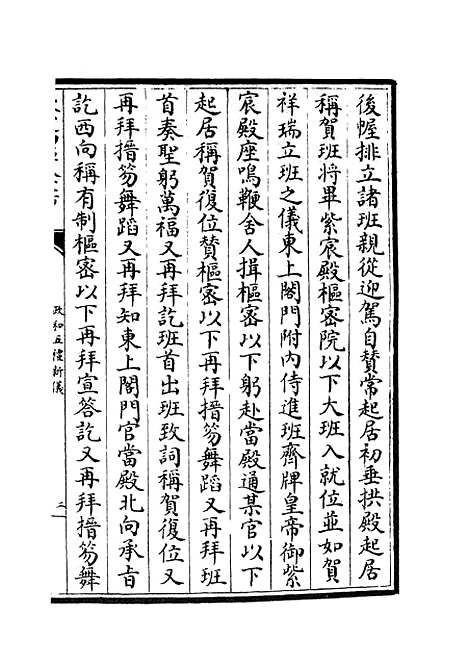 後幄排立諸班親從迎駕自贊常起居初垂拱殿起居
稱賀班將畢紫宸殿樞密院以下大班入就位並如賀
祥瑞立班之儀東上閤門附內侍進班齊牌皇帝御紫
宸殿座鳴鞭舍人揖樞密以下躬赴當殿通某官以下
起居稱賀復位贊樞密以下再拜搢笏舞蹈又再拜班
首奏聖躬萬福又再拜訖班首出班致詞稱賀復位又
再拜搢笏舞蹈又再拜知東上閤門官當殿北向承旨
訖西向稱有制樞密以下再拜宣答訖又再拜搢笏舞
政和五禮新儀
二